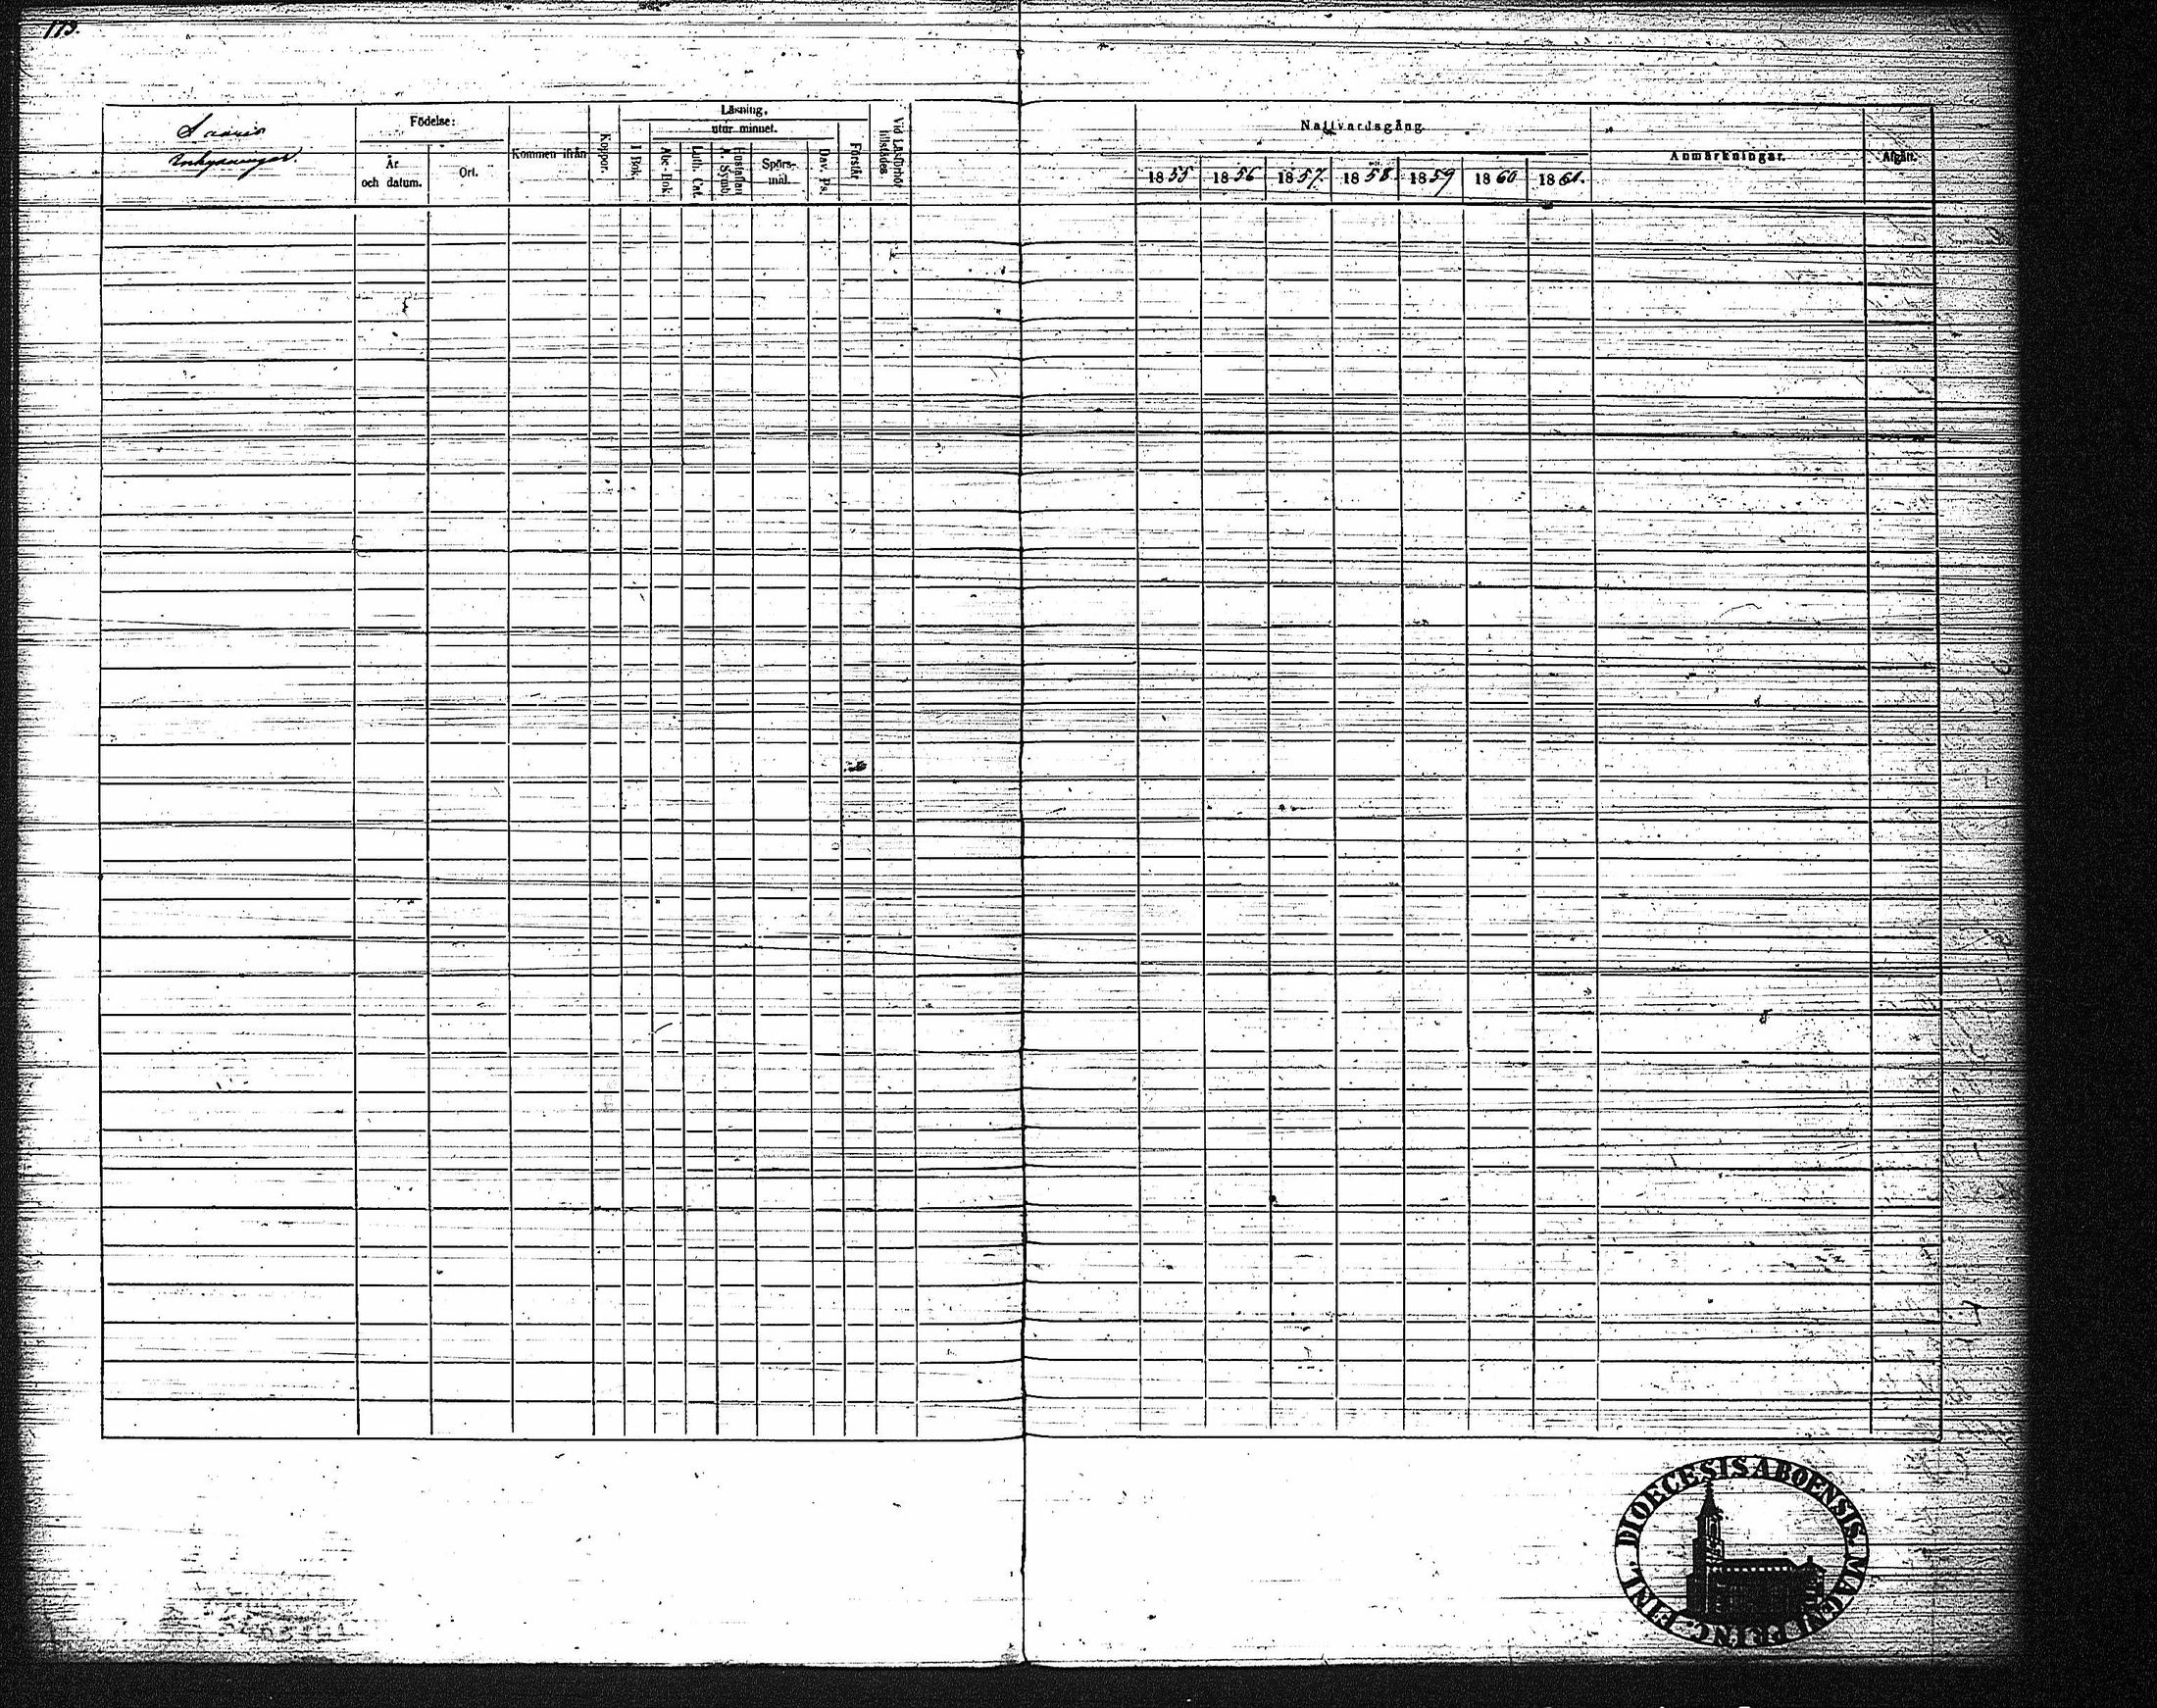 173.
Saaris
Inhysningar.
Födelse:
År
och datum.
Ort.
Kommen ifrån
Koppor.
Läsning,
utur minnet.
I Bok.
Abc-Bok.
Luth. Cat.
Hustaflan
A. Symb.
Spörs-
mål.
Dav. Ps.
Förstår
Vid Läsförhör
tillstädes
Nattvardsgång.
1855 1856 1857. 1858. 1859 1860 1861.
Anmärkningar.
Afgått.
DIOECESIS ABOENSIS MAGNI PRINC. FINL.